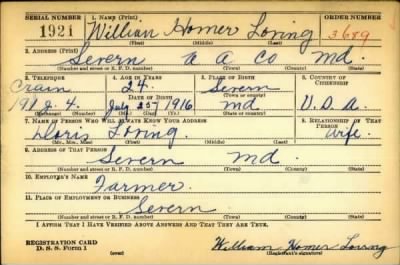 SERIAL NUMBER 1. NAME (Print) ORDER NUMBER
1921 William Homer Loving 3689
(First) (Middle) (Last)
2. ADDRESS (Print)
Severn A A Co Md.
(Number and street or R. F. D. number) (Town) (County) (State)
3. TELEPHONE 4. AGE IN YEARS 5. PLACE OF BIRTH 6. COUNTRY OF CITIZENSHIP
Crain 24. Severn
DATE OF BIRTH (Town or county)
191 J. 4. July 25 1916 Md. U. S. A.
(Exchange) (Number) (Mo.) (Day) (Yr.) (State or country)
7. NAME OF PERSON WHO WILL ALWAYS KNOW YOUR ADDRESS 8. RELATIONSHIP OF THAT PERSON
Doris Loving. Wife.
(Mr., Mrs., Miss) (First) (Middle) (Last)
9. ADDRESS OF THAT PERSON
Severn Md.
(Number and street or R. F. D. number) (Town) (County) (State)
10. EMPLOYER'S NAME
Farmer.
11. PLACE OF EMPLOYMENT OR BUSINESS
Severn.
(Number and street or R. F. D. number) (Town) (County) (State)
I AFFIRM THAT I HAVE VERIFIED ABOVE ANSWERS AND THAT THEY ARE TRUE.
REGISTRATION CARD
D. S. S. Form 1 (over) William Homer Loving
(Registrant's signature)